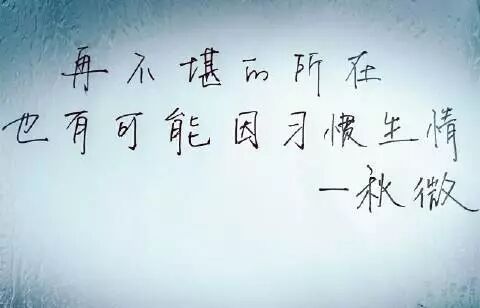 再不堪的所在
也有可能因习惯生情
一秋微